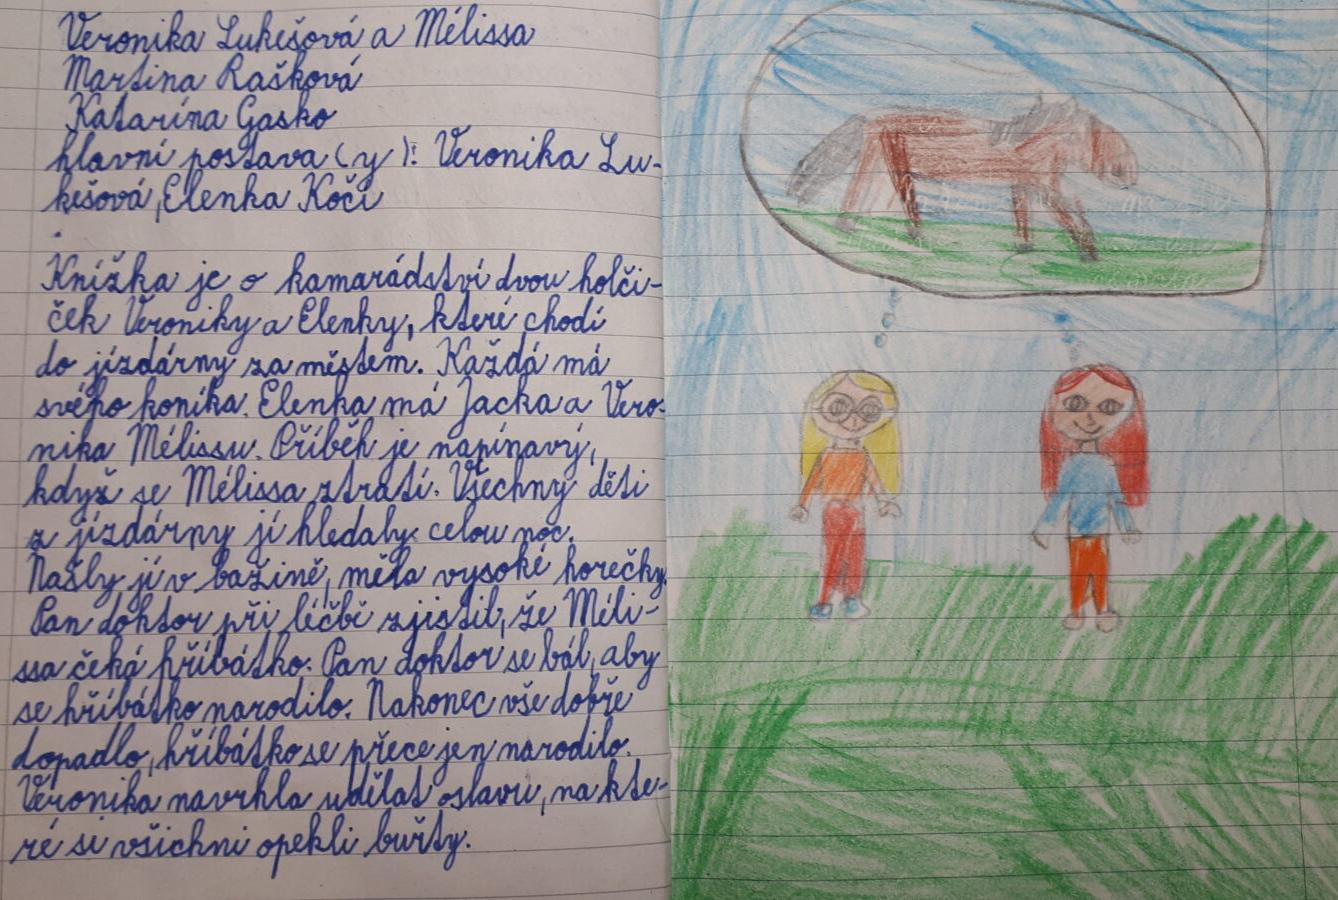 Veronika Lukešová a Mélissa
Martina Rašková
Katarína Gasko
hlavní postava (y): Veronika Lu-
kešová, Elenka Kočí
Knížka je o kamarádství dvou holči-
ček Veroniky a Elenky, které chodí
do jízdárny za městem. Každá má
svého koníka. Elenka má Jacka a Vero-
nika Mélissu. Příběh je napínavý,
když se Mélissa ztratí. Všechny děti
z jízdárny jí hledaly celou noc.
Našly jí v bažině, měla vysoké horečky.
Pan doktor při léčbě zjistil, že Méli-
ssa čeká hříbátko. Pan doktor se bál, aby
se hříbátko narodilo. Nakonec vše dobře
dopadlo, hříbátko se přece jen narodilo.
Veronika navrhla udělat oslavu, na kte-
ré si všichni opekli buřty.